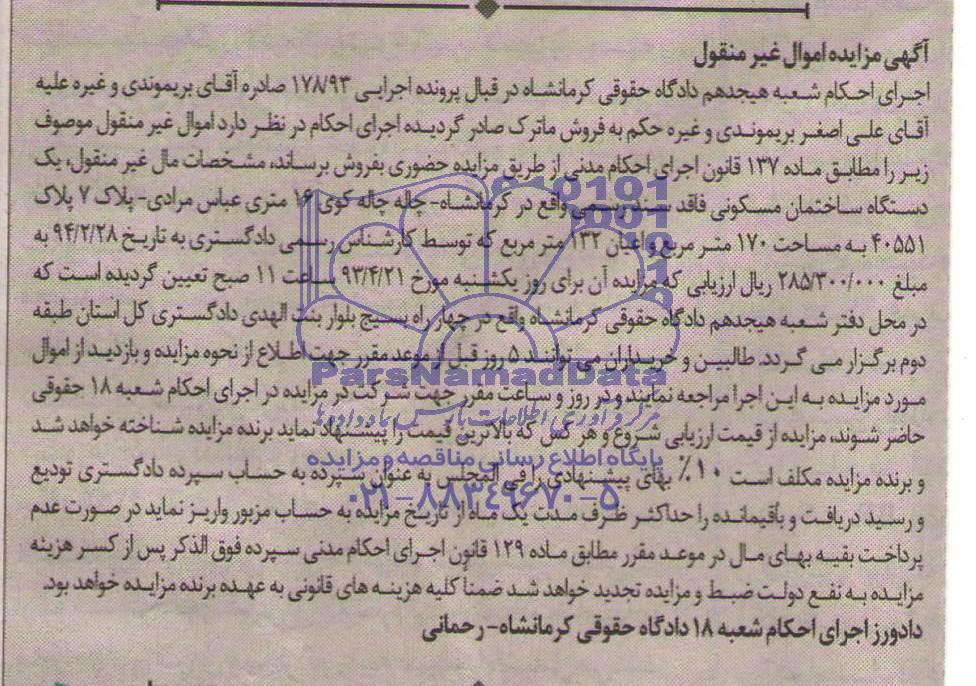 آگهی مزایده اموال غیر منقول
اجرای احکام شعبه هیجدهم دادگاه حقوقی کرمانشاه در قبال پرونده اجرایی ۱۷۸/۹۳ صادره آقای بریموندی و غیره علیه
آقای علی اصغر بریموندی و غیره حکم به فروش ماترک صادر گردیده اجرای احکام در نظر دارد اموال غیر منقول موصوف
زیر را مطابق ماده ۱۳۷ قانون اجرای احکام مدنی از طریق مزایده حضوری بفروش برساند، مشخصات مال غیر منقول، یک
دستگاه ساختمان مسکونی فاقد سند رسمی واقع در کرمانشاه- چاله چاله کوی ۱۶ متری عباس مرادی- پلاک ۷ پلاک
۴۰۵۵۱ به مساحت ۱۷۰ متر مربع و اعیان ۱۳۲ متر مربع که توسط کارشناس رسمی دادگستری به تاریخ ۹۴/۲/۲۸ به
مبلغ ۲۸۵/۳۰۰/۰۰۰ ریال ارزیابی که مزایده آن برای روز یکشنبه مورخ ۹۳/۴/۲۱ ساعت ۱۱ صبح تعیین گردیده است که
در محل دفتر شعبه هیجدهم دادگاه حقوقی کرمانشاه واقع در چهار راه بسیج بلوار بنت الهدی دادگستری کل استان طبقه
دوم برگزار می گردد. طالبین و خریداران می توانند ۵ روز قبل از موعد مقرر جهت اطلاع از نحوه مزایده و بازدید از اموال
مورد مزایده به این اجرا مراجعه نمایند و در روز و ساعت مقرر جهت شرکت در مزایده در اجرای احکام شعبه ۱۸ حقوقی
حاضر شوند، مزایده از قیمت ارزیابی شروع و هر کس که بالاترین قیمت را پیشنهاد نماید برنده مزایده شناخته خواهد شد
و برنده مزایده مکلف است ۱۰٪ بهای پیشنهادی را فی المجلس به عنوان سپرده به حساب سپرده دادگستری تودیع
و رسید دریافت و باقیمانده را حداکثر ظرف مدت یک ماه از تاریخ مزایده به حساب مزبور واریز نماید در صورت عدم
پرداخت بقیه بهای مال در موعد مقرر مطابق ماده ۱۲۹ قانون اجرای احکام مدنی سپرده فوق الذکر پس از کسر هزینه
مزایده به نفع دولت ضبط و مزایده تجدید خواهد شد ضمناً کلیه هزینه های قانونی به عهده برنده مزایده خواهد بود.
دادورز اجرای احکام شعبه ۱۸ دادگاه حقوقی کرمانشاه- رحمانی
ParsNamadData
پایگاه اطلاع رسانی مناقصه و مزایده
۰۲۱-۸۸۳۴۹۶۷۰-۵